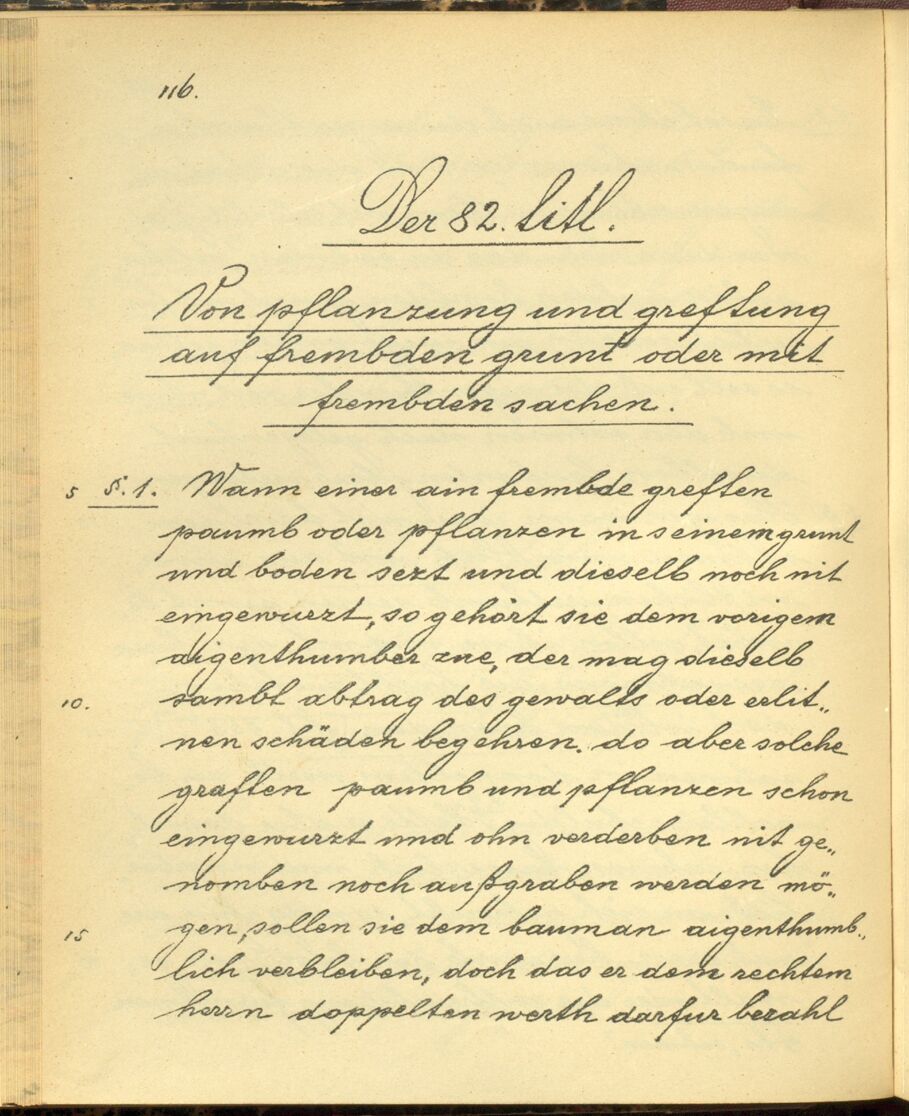 116.
Der 82. titl.
Von pflanzung und greftung
auf frembden grunt oder mit
frembden sachen.
5 §.1. Wann einer ain frembde greften
paumb oder pflanzen in seinem grunt
und boden sezt und dieselb noch nit
eingewurzt, so gehört sie dem vorigem
aigenthumber zue, der mag dieselb
10. sambt abtrag des gewalts oder erlit„
nen schäden begehren. do aber solche
graften paumb und pflanzen schon
eingewurzt und ohn verderben nit ge„
nomben noch außgraben werden mö„
15 gen, sollen sie dem bauman aigenthumb„
lich verbleiben, doch das er dem rechtem
herrn doppelten werth darfur bezahl